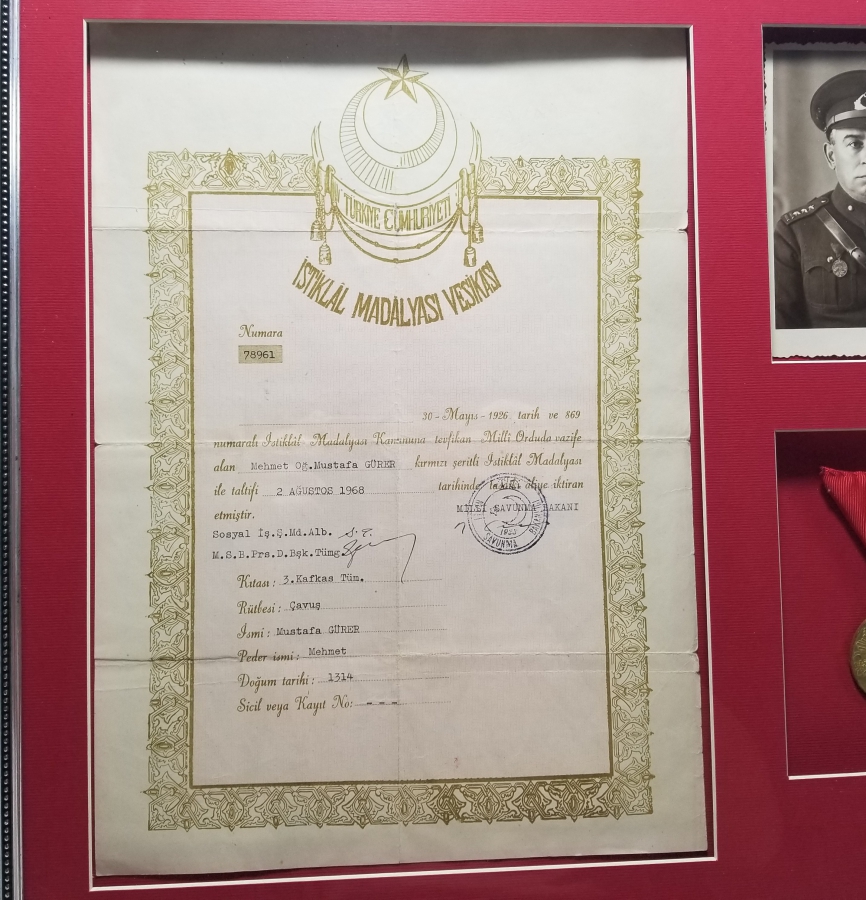 TÜRKİYE CÜMHURİYETİ
İSTİKLÂL MADALYASI VESİKASI
Numara
78961
30 - Mayıs - 1926 tarih ve 869
numaralı İstiklâl Madalyası Kanununa tevfikan Milli Orduda vazife
alan Mehmet Oğ.Mustafa GÜRER kırmızı şeritli İstiklâl Madalyası
ile taltifi 2 AĞUSTOS 1968 tarihinde aliye iktiran
etmiştir.
MİLLİ SAVUNMA BAKANI
SAVUNMA
Sosyal İş.Ş.Md.Alb.
M.S.B.Prs.D.Bşk.Tümg.
Kıtası : 3.Kafkas Tüm.
Rütbesi : Çavuş
İsmi : Mustafa GÜRER
Peder ismi : Mehmet
Doğum tarihi : 1314
Sicil veya Kayıt No: - - -